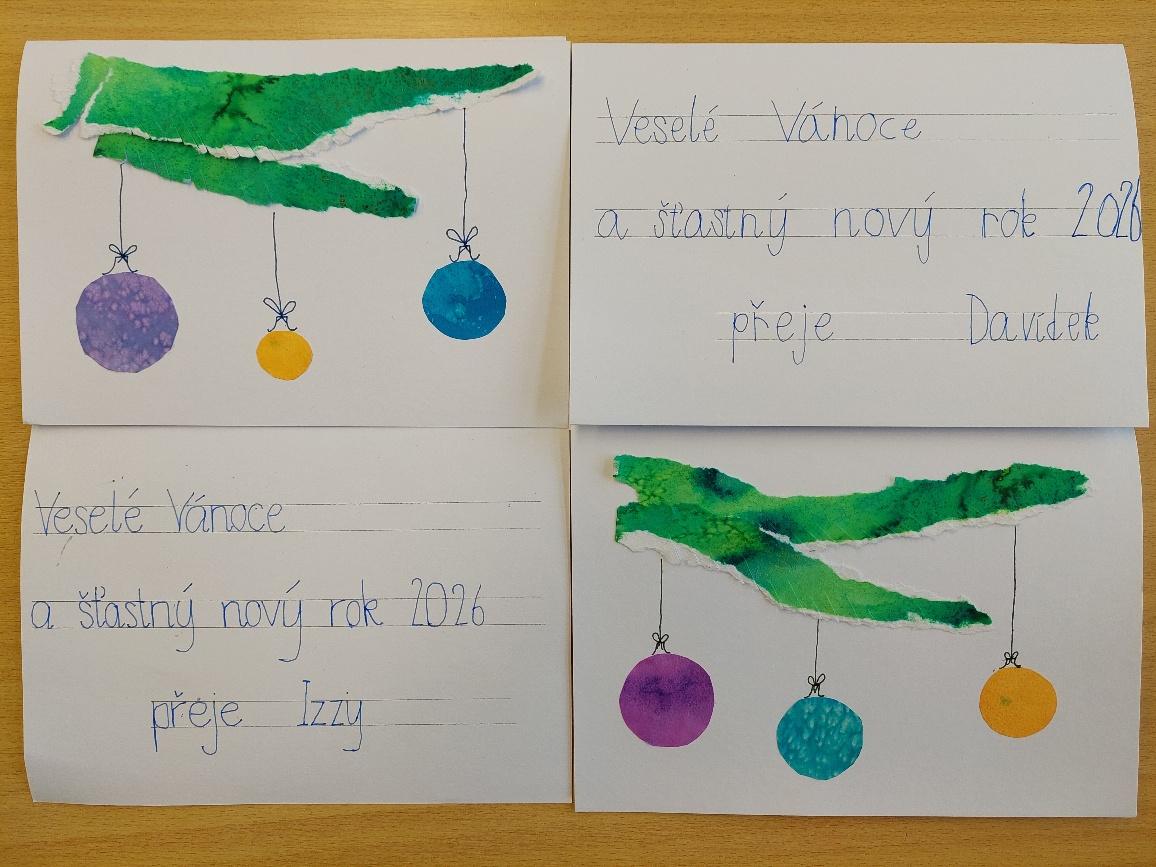 Veselé Vánoce
a šťastný nový rok 2026
přeje Davídek
Veselé Vánoce
a šťastný nový rok 2026
přeje Izzy